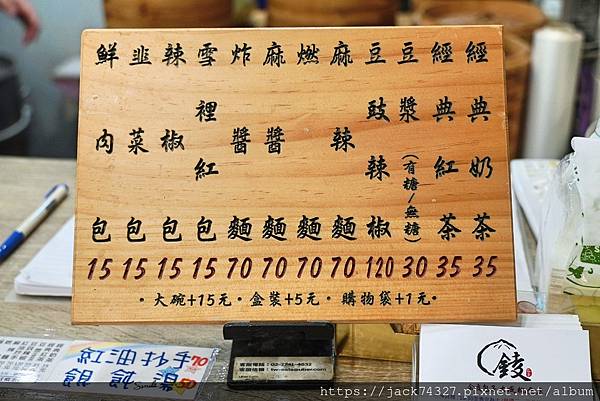 鮮肉包 15
韭菜包 15
辣椒包 15
雪裡紅包 15
炸醬麵 70
麻醬麵 70
燃麵 70
麻辣麵 70
豆豉辣椒 120
豆漿(有糖/無糖) 30
經典紅茶 35
經典奶茶 35
·大碗+15元·盒裝+5元·購物袋+1元·
紅油抄手70
餛飩湯50
https://jack74327.pixnet.net/album